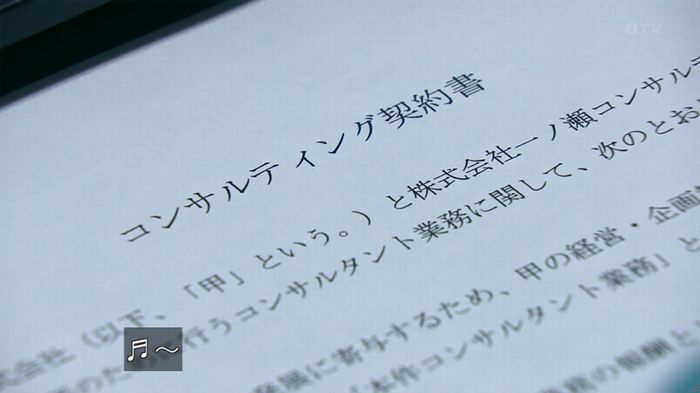 OTV
コンサルティング契約書
式会社（以下、「甲」という。）と株式会社一ノ瀬コンサルテ
のために行うコンサルタント業務に関して、次のとお
発展に寄与するため、甲の経営・企画
「本件コンサルタント業務」と
業務の報酬と
♬～